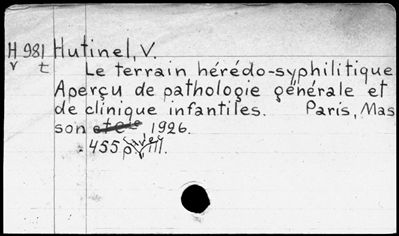 H 981 Hutinel, V.
v t
Le terrain hérédo-syphilitique
Aperçu de pathologie générale et
de clinique infantiles. Paris, Mas
son et Cie 1926.
455 p. ill.